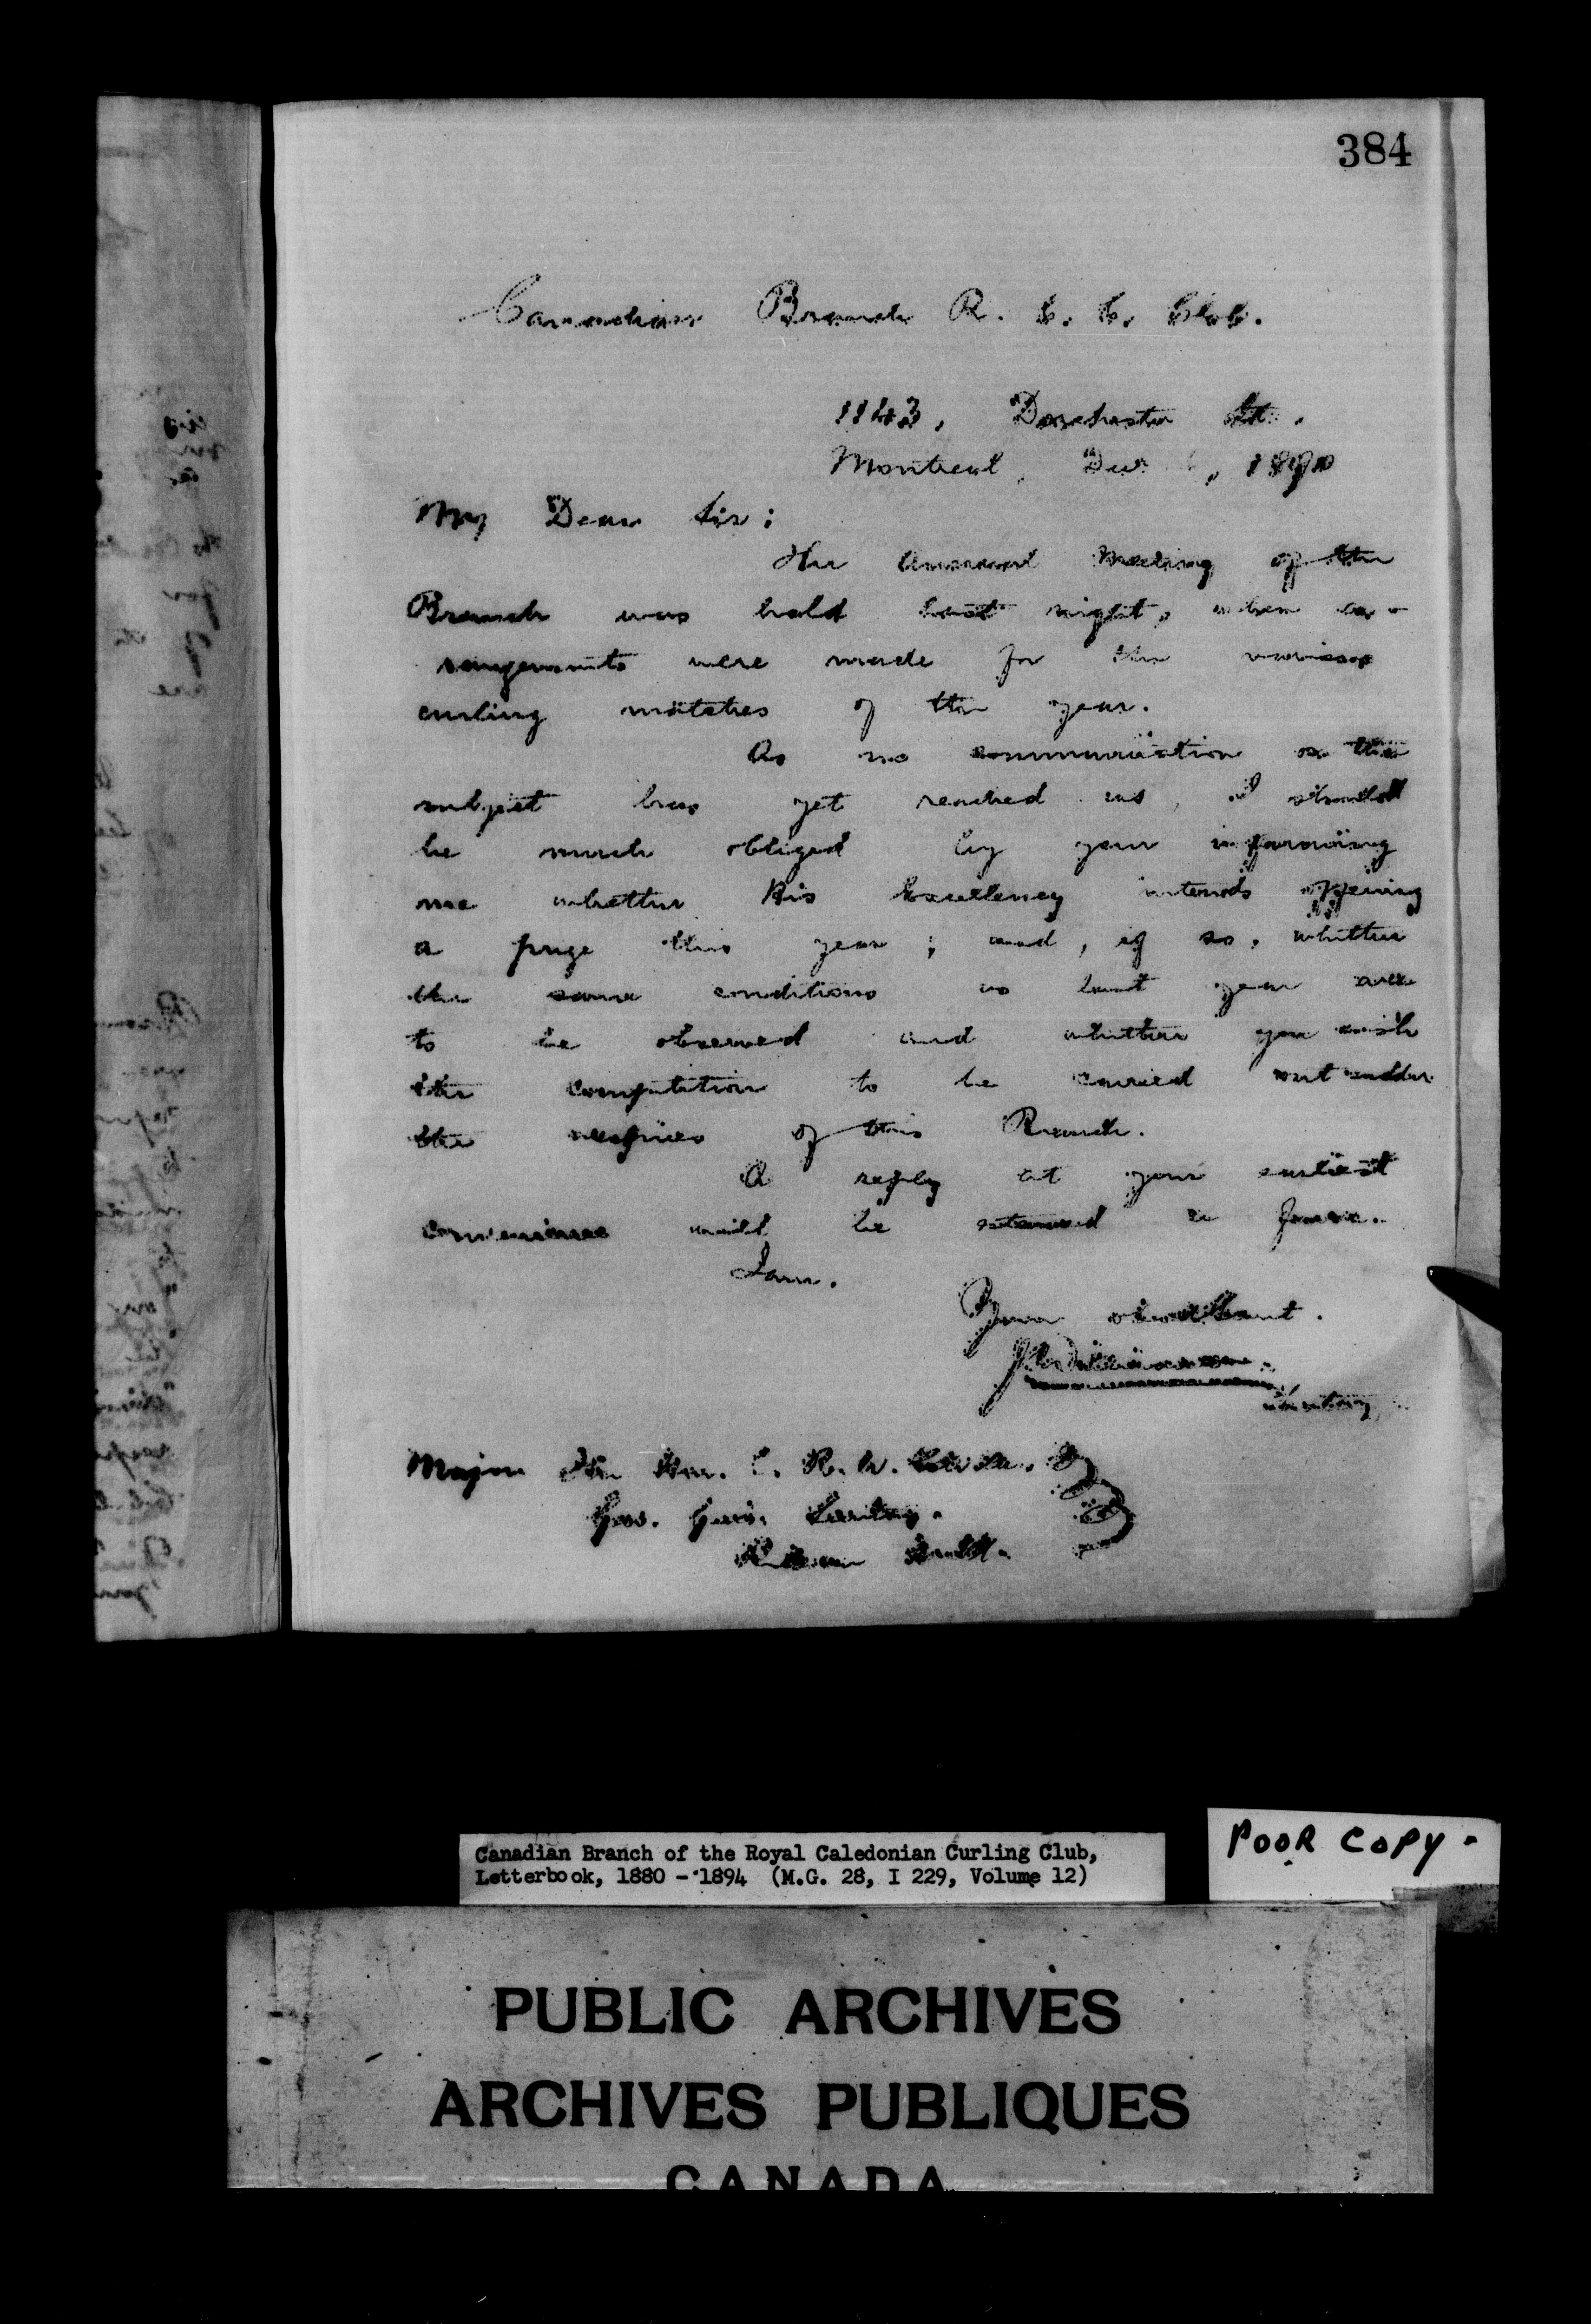 384
Canadian Branch R. C. C. Club.
1143, Dorchester St.,
Montreal, Dec , 1890
My Dear Sir:
The Annual Meeting of the
Branch was held last night, when ar-
rangements were made for the various
curling matches of the year.
As no communication on the
subject has yet reached us, I should
be much obliged by your informing
me whether His Excellency intends offering
a prize this year; and, if so, whether
the same conditions as last year are
to be observed and whether you wish
the competition to be carried out under
the auspices of this Branch.
A reply at your earliest
convenience will be esteemed a favor.
I am,
Your obedient
Secretary
Major The Hon. C. R. W. Colville,
Gov. Gen. Secretary.
Rideau Hall.
Canadian Branch of the Royal Caledonian Curling Club,
Letterbook, 1880 - 1894 (M.G. 28, I 229, Volume 12)
POOR COPY.
PUBLIC ARCHIVES
ARCHIVES PUBLIQUES
CANADA